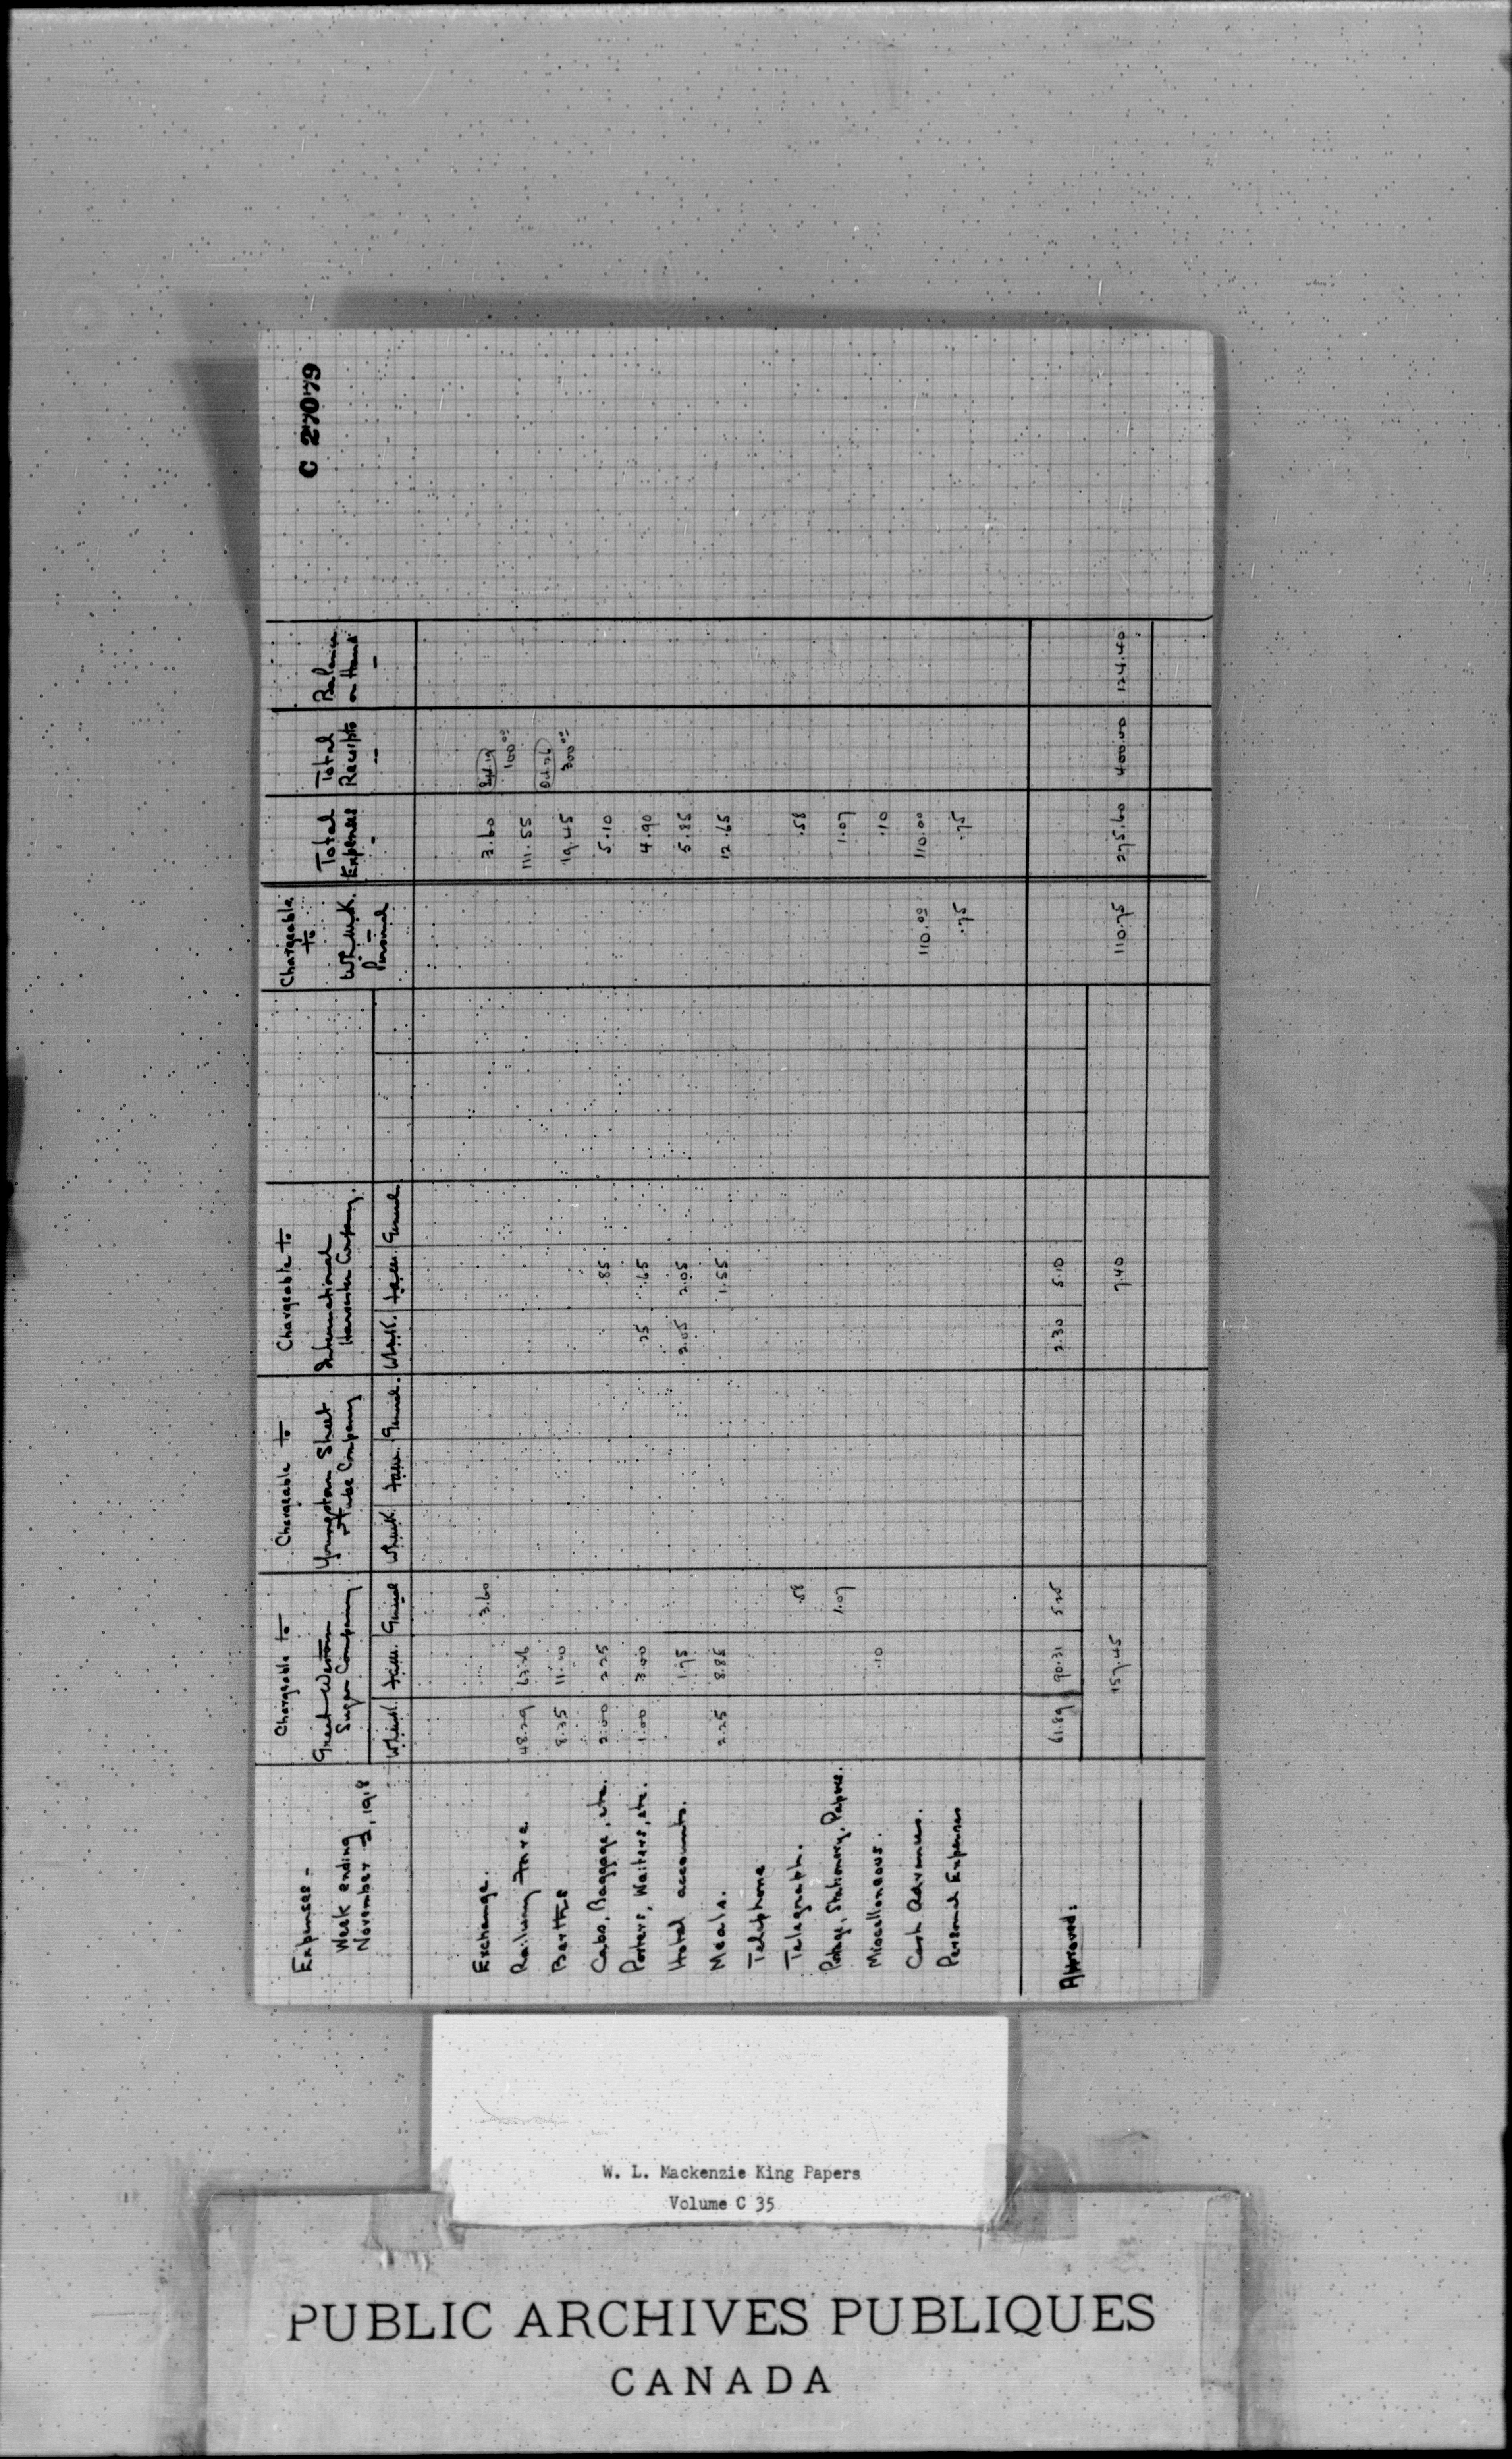 C 27079
Expenses -
Week ending
November 2, 1918
Chargeable to
Great Western
Sugar Company
W.L.M.K. F.A.M. General
Chargeable to
Youngstown Sheet
& Tube Company
W.L.M.K. F.A.M. General.
Chargeable to
International
Harvester Company.
W.L.M.K. F.A.M. General
Chargeable
to
W.L.M.K.
Personal
Total
Expenses
-
Total
Receipts
-
Balance
on Hand
-
Exchange. 3.60 3.60 Sept. 19
100.00
Railway Fare 48.29 63.26 111.55 Oct. 26
Berths 8.35 11.10 19.45 300.00
Cabs, Baggage, etc. 2.00 2.25 .85 5.10
Porters, Waiters, etc. 1.00 3.00 .25 .65 4.90
Hotel accounts. 1.75 2.05 2.05 5.85
Meals. 2.25 8.85 1.55 12.65
Telephone
Telegraph. .58 .58
Postage, Stationery, Papers. 1.07 1.07
Miscellaneous. .10 .10
Cash Advances. 110.00 110.00
Personal Expenses .75 .75
Approved: 61.89 90.31 5.25 2.30 5.10
157.45 7.40 110.75 275.60 400.00 124.40
W. L. Mackenzie King Papers
Volume C 35
PUBLIC ARCHIVES PUBLIQUES
CANADA